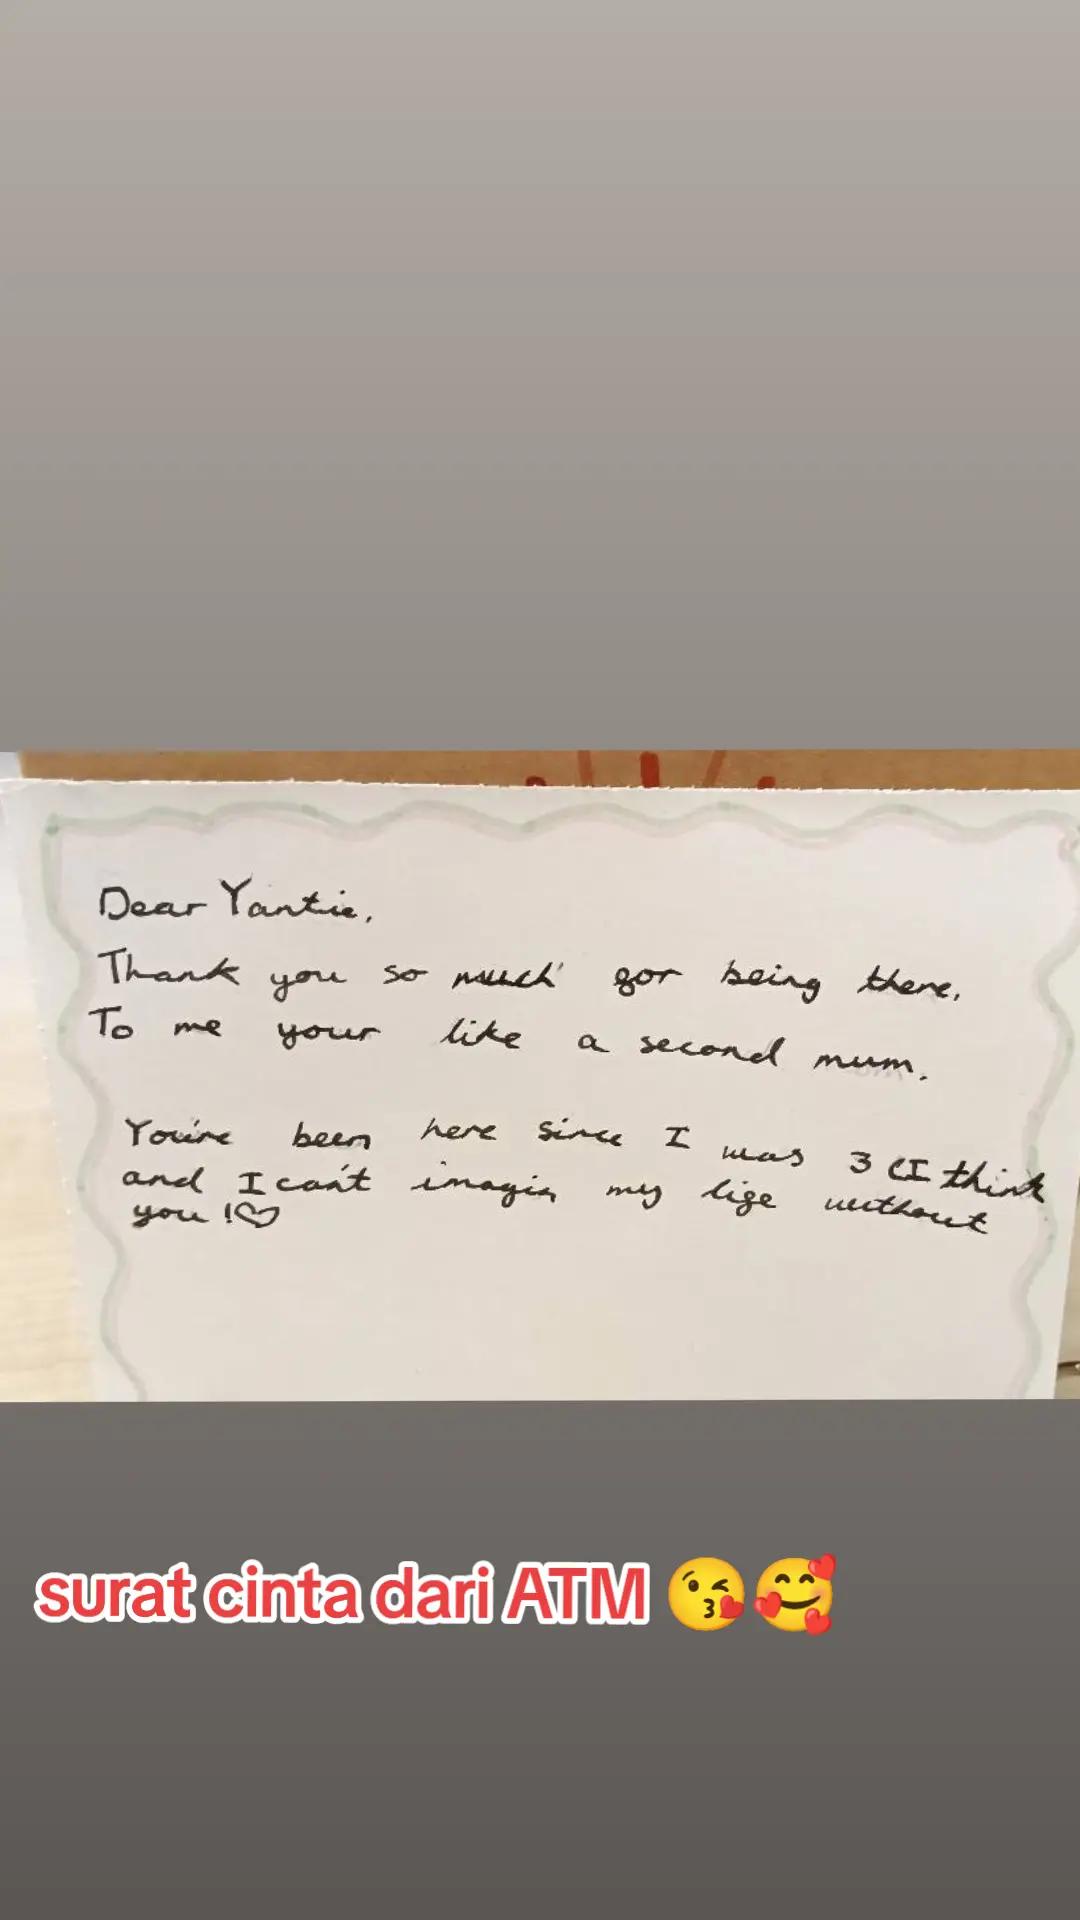 Dear Yantie,
Thank you so much for being there.
To me your like a second mum.
You're been here since I was 3 (I think
and I can't imagin my life without
you !♡
surat cinta dari ATM 😘🥰